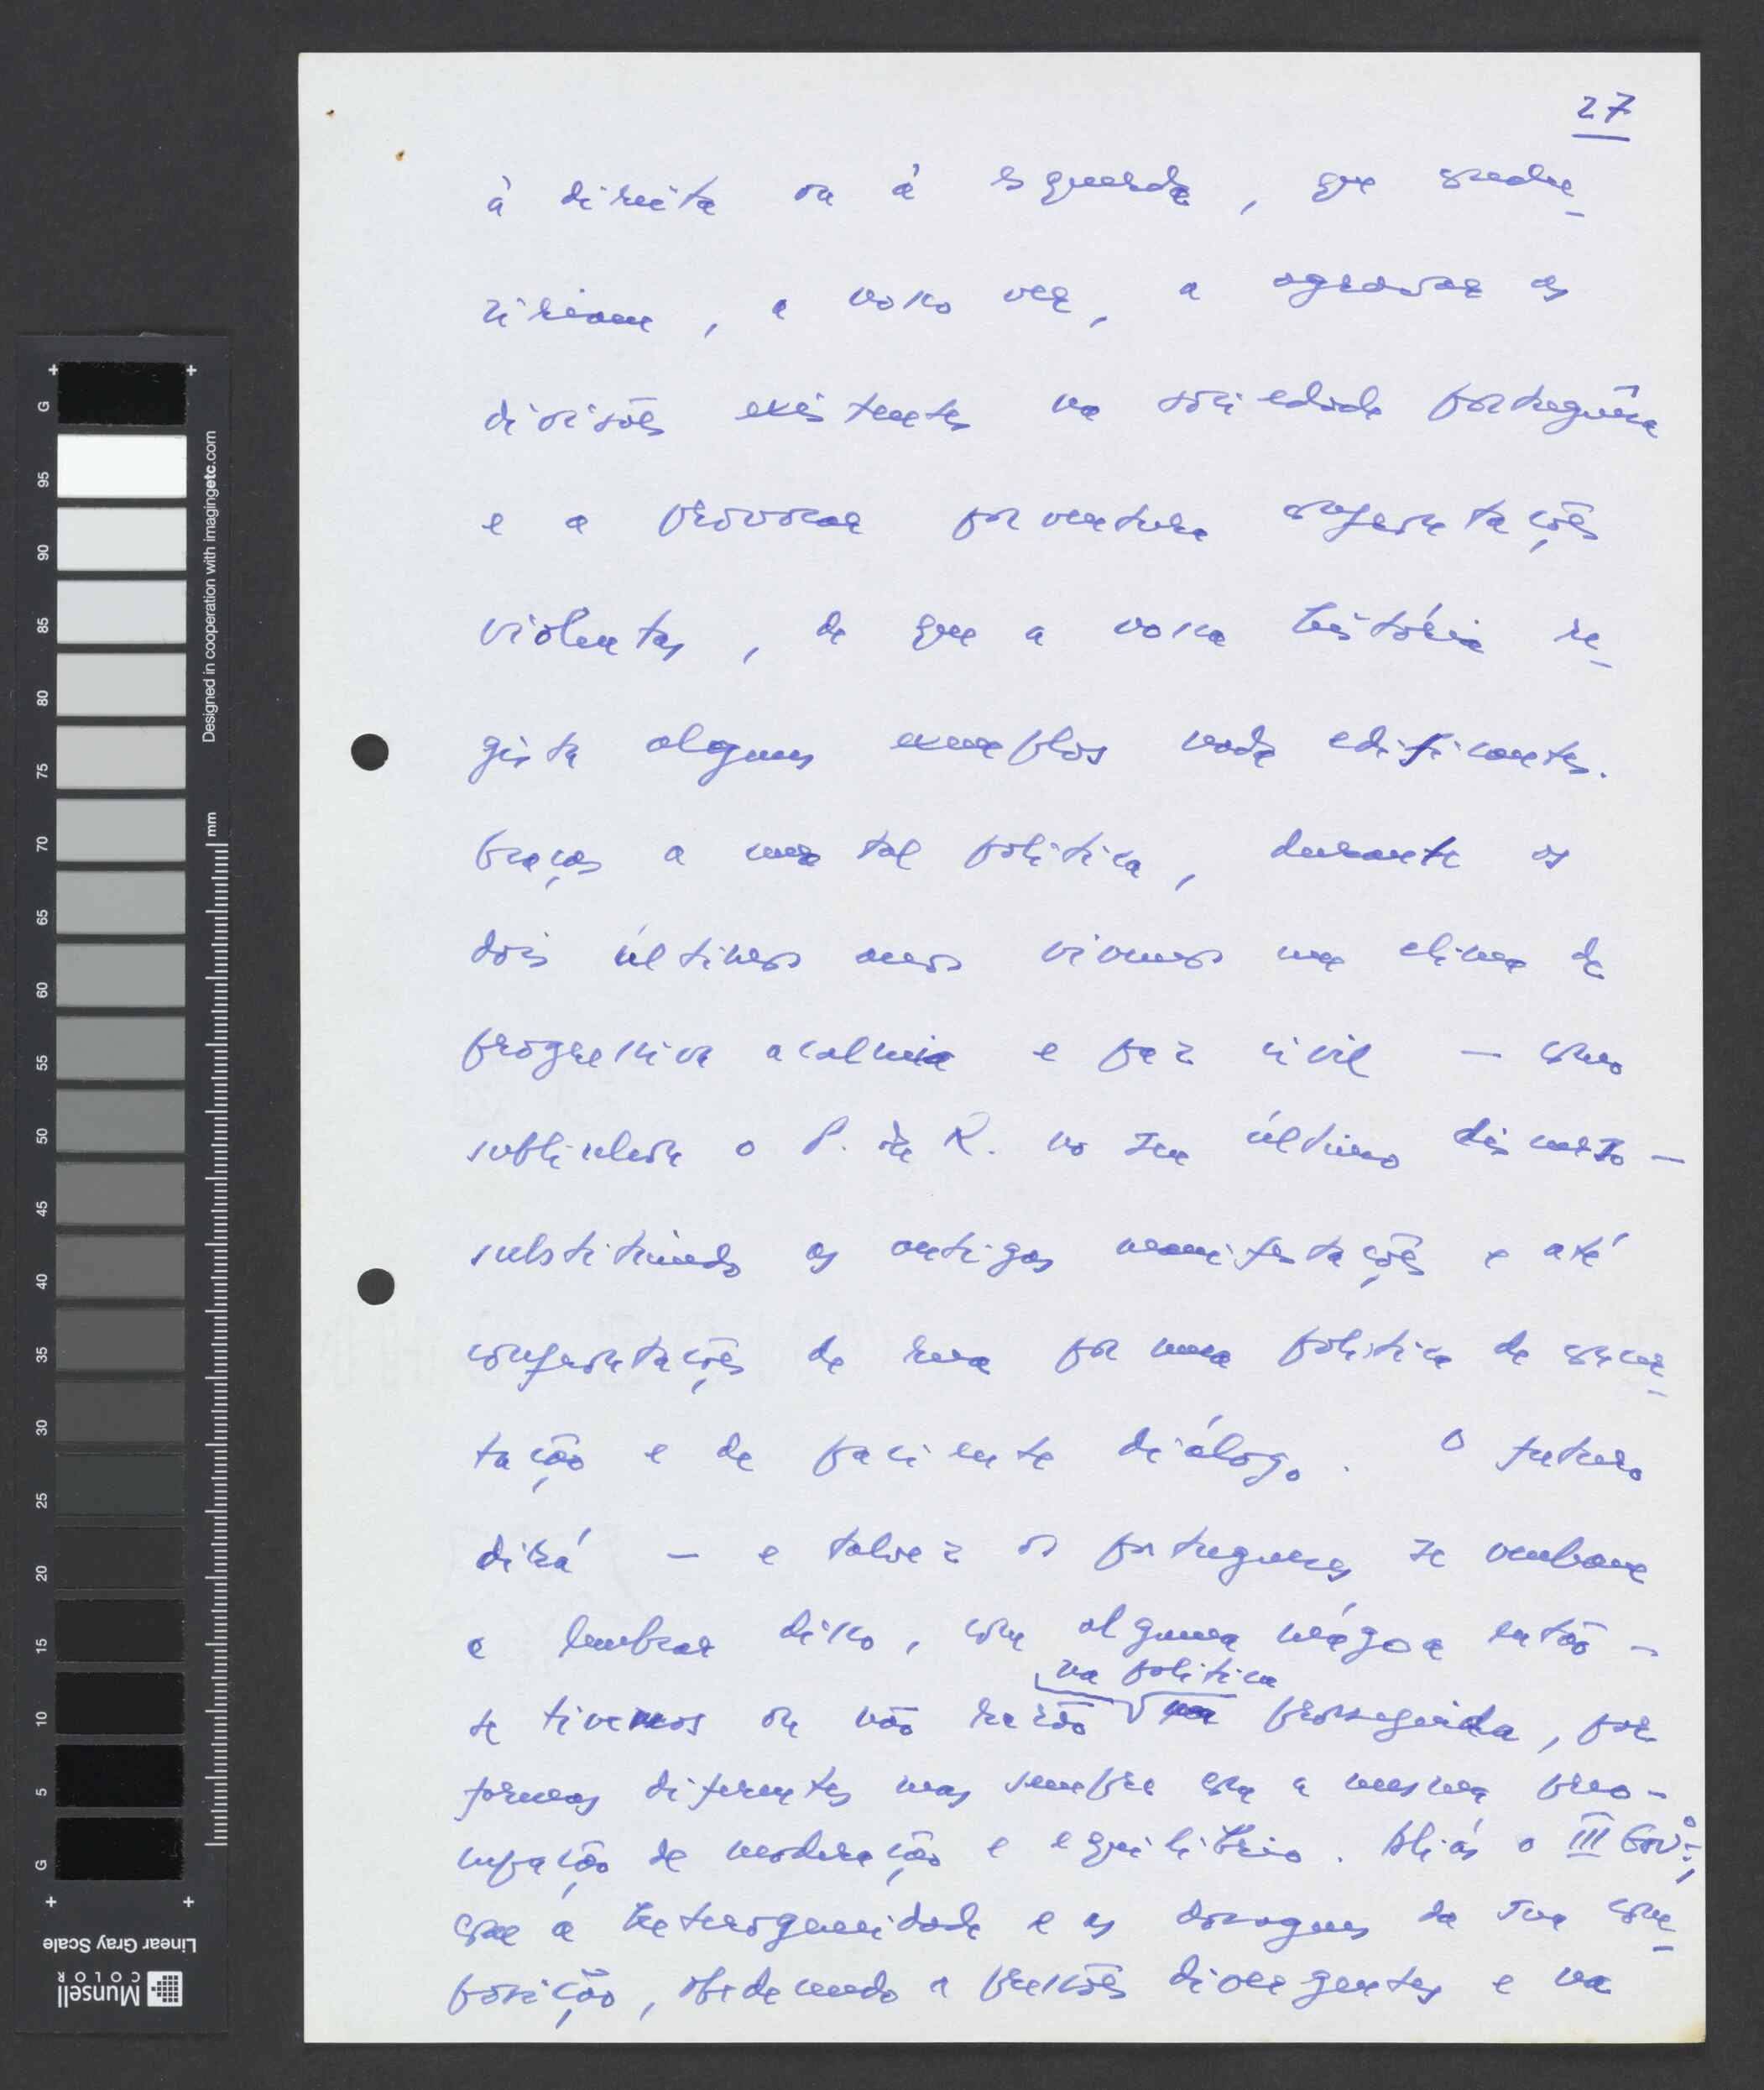 27
à direita ou à esquerda, que condu-
ziriam, a nosso ver, a agravar as
divisões existentes na sociedade portuguêsa
e a provocar porventura confrontações
violentas, de que a nossa história re-
gista alguns exemplos nada edificantes.
Graças a uma tal política, durante os
dois últimos anos vivemos um clima de
progressiva acalmia e paz civil — como
sublinhou o P. da R. no seu último discurso —
substituindo as antigas manifestações e até
confrontações de rua por uma política de concer-
tação e de paciente diálogo. O futuro
dirá — e talvez os portugueses se venham
a lembrar disso, com alguma mágoa então —
se tivemos ou não razão na política prosseguida, por
formas diferentes mas sempre com a mesma preo-
cupação de moderação e equilíbrio. Aliás o III Govº.,
com a heterogeneidade e as dosagens da sua com-
posição, obedecendo a pressões divergentes e na
G 95 90 85 80 75 70 65 60 55 50 45 40 35 30 25 20 15 10 5 G
mm
Designed in cooperation with imagingetc.com
Linear Gray Scale
Munsell
COLOR